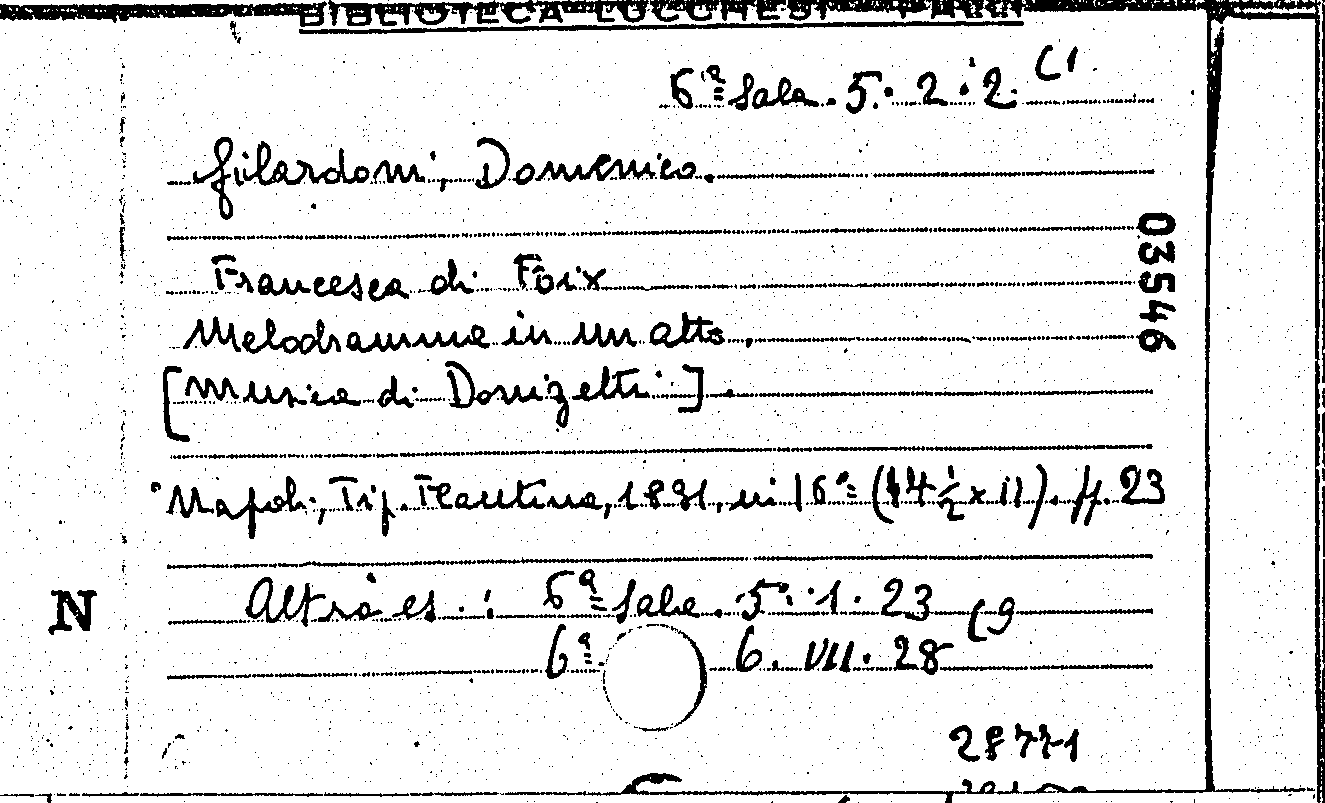 BIBLIOTECA LUCCHESI - PALLI
6ª Sala. 5. 2. 2. (1.
Gilardoni, Domenico.
03546
Francesca di Foix
Melodramma in un atto.
[Musica di Donizetti].
Napoli, Tip. Flautina, 1831, in 16º (14 ½ x 11). p. 23
N
Altro es.: 6ª Sala. 5. 1. 23 (9
6ª 6. VII. 28
28771